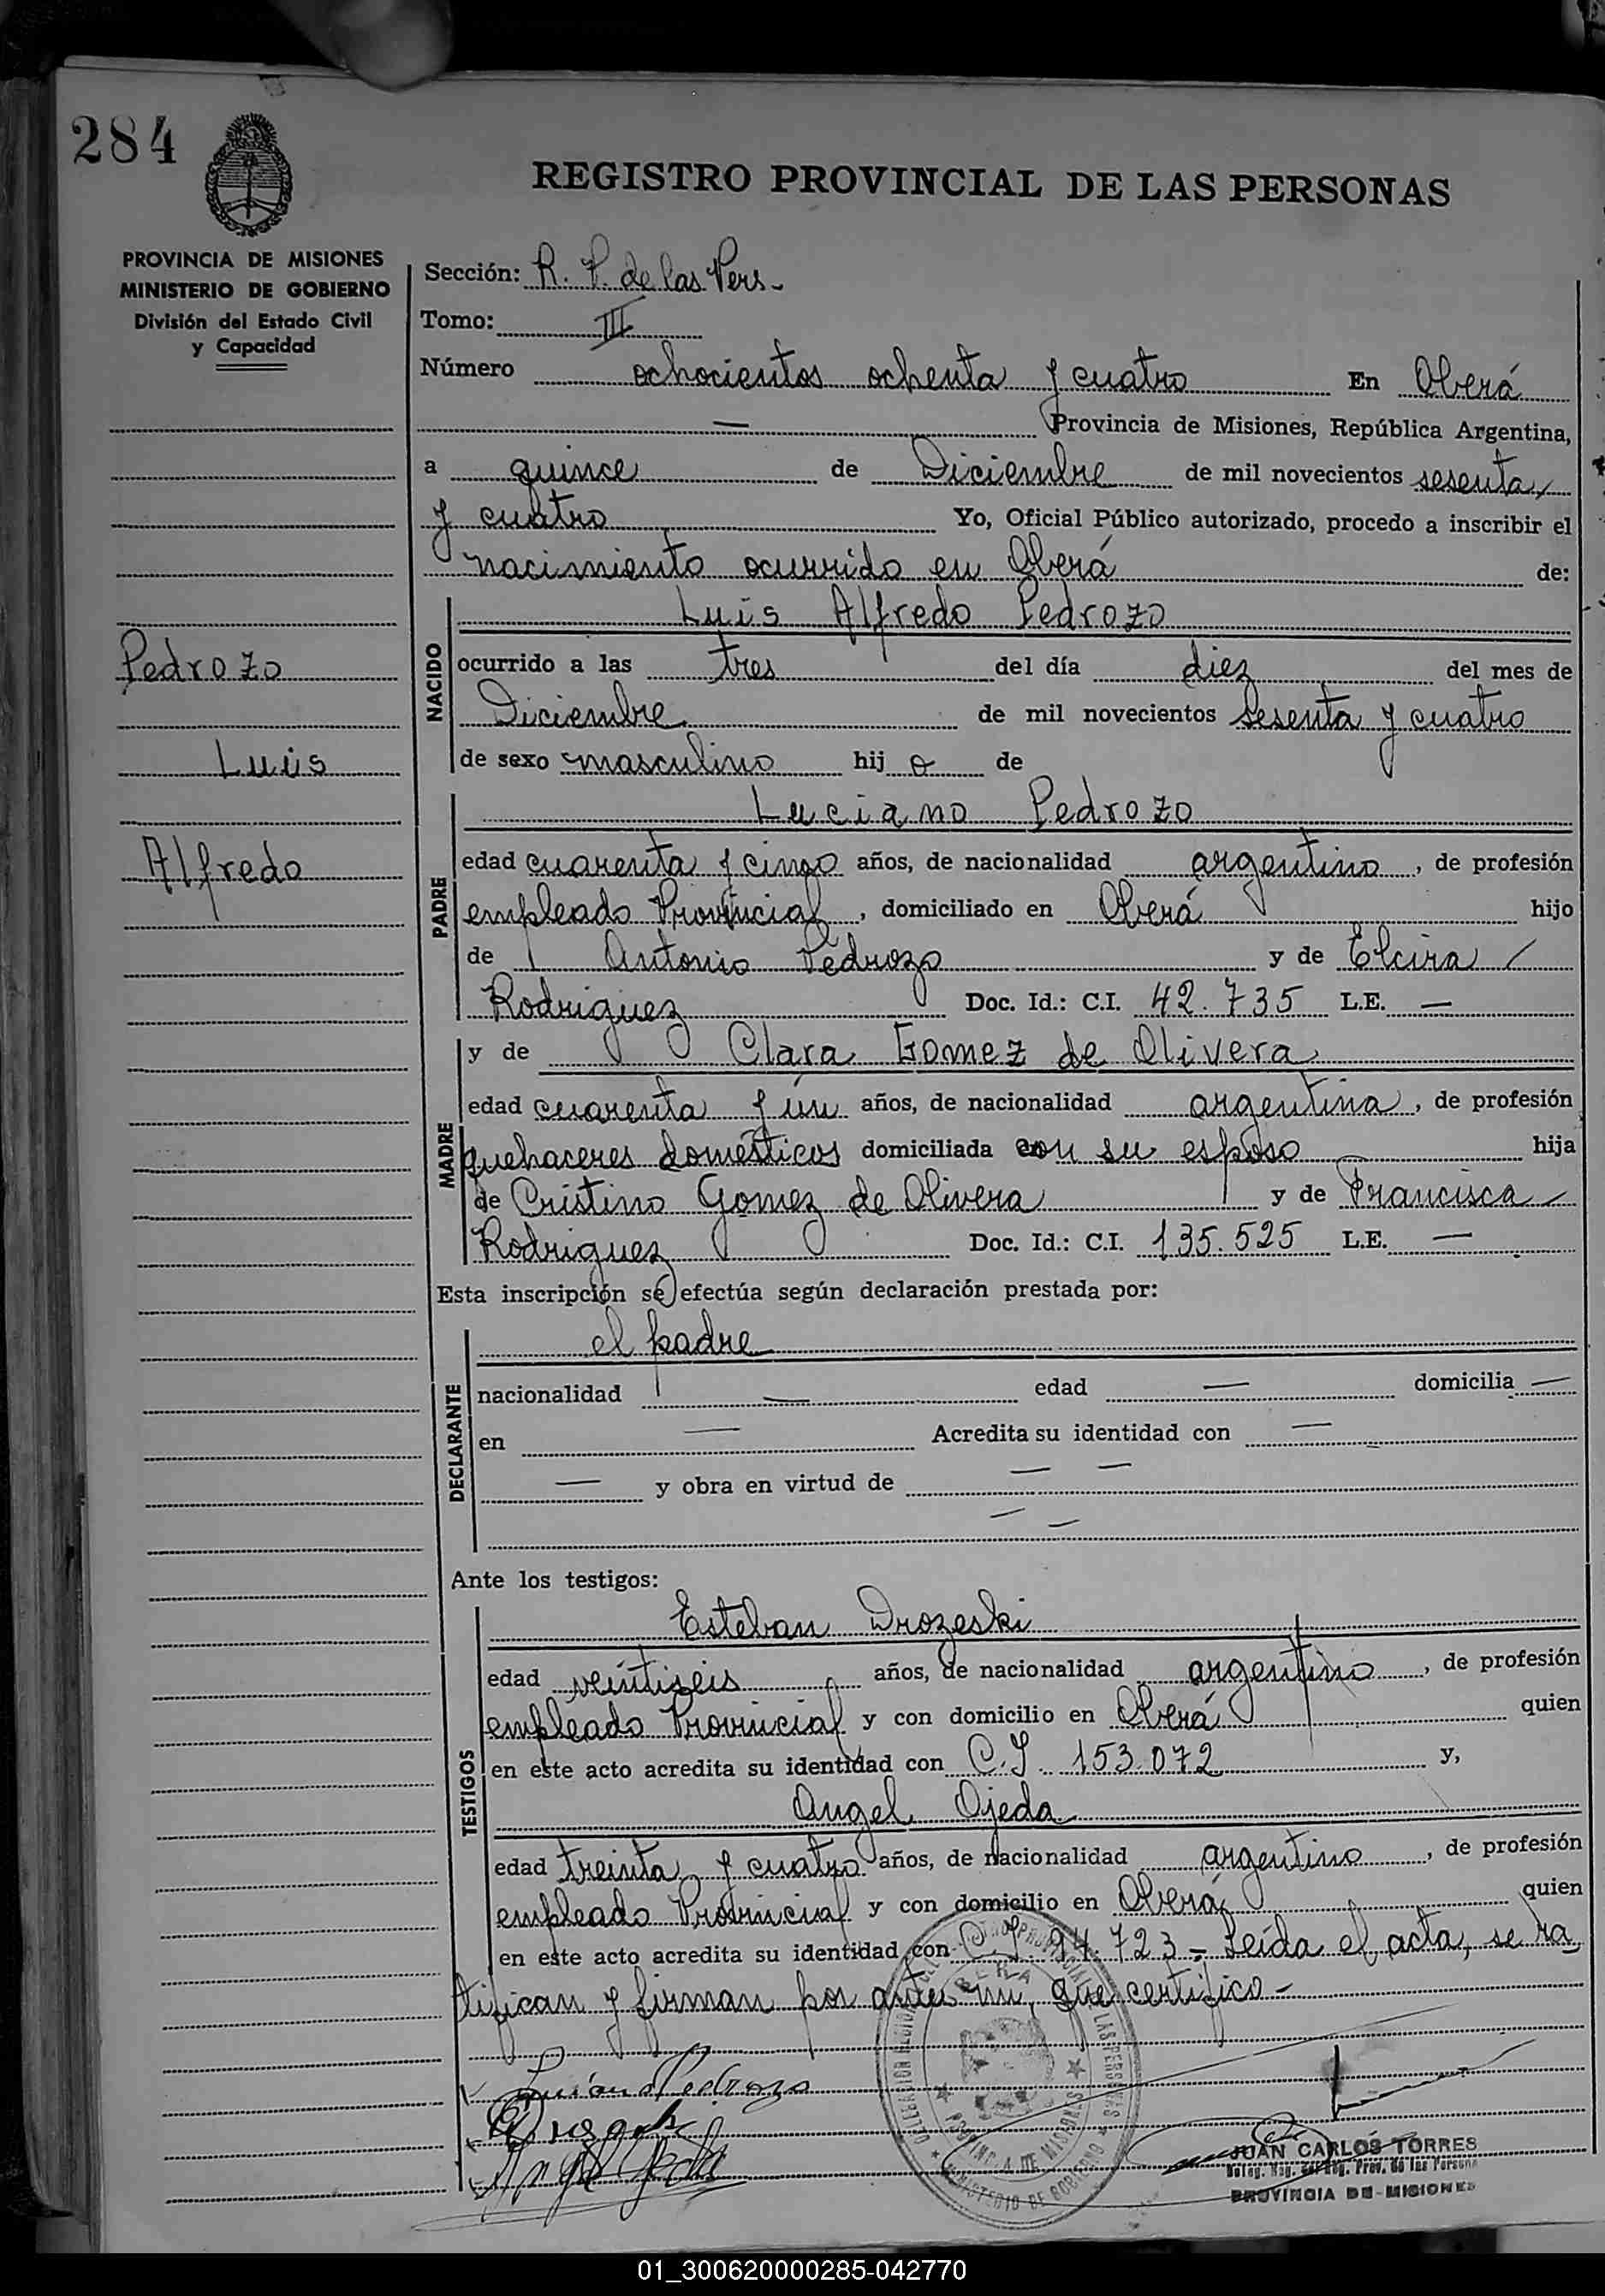 284
REGISTRO PROVINCIAL DE LAS PERSONAS
PROVINCIA DE MISIONES
MINISTERIO DE GOBIERNO
División del Estado Civil
y Capacidad
Sección: R. P. de las Pers.-
Tomo: III
Número ochocientos ochenta y cuatro En Oberá
— Provincia de Misiones, República Argentina,
a quince de Diciembre de mil novecientos sesenta
y cuatro Yo, Oficial Público autorizado, procedo a inscribir el
nacimiento ocurrido en Oberá de:
Pedrozo
Luis
Alfredo
NACIDO
Luis Alfredo Pedrozo
ocurrido a las tres del día diez del mes de
Diciembre de mil novecientos sesenta y cuatro
de sexo masculino hijo de
PADRE
Luciano Pedrozo
edad cuarenta y cinco años, de nacionalidad argentino, de profesión
empleado Provincial, domiciliado en Oberá hijo
de Antonio Pedrozo y de Elcira /
Rodriguez Doc. Id.: C.I. 42.735 L.E. —
MADRE
y de Clara Gomez de Olivera
edad cuarenta y un años, de nacionalidad argentina, de profesión
quehaceres domésticos domiciliada con su esposo hija
de Cristino Gomez de Olivera y de Francisca —
Rodriguez Doc. Id.: C.I. 135.525 L.E. —
Esta inscripción se efectúa según declaración prestada por:
DECLARANTE
el padre
nacionalidad — edad — domicilia —
en — Acredita su identidad con —
— y obra en virtud de — —
— —
Ante los testigos:
TESTIGOS
Esteban Drozeski
edad veintiseis años, de nacionalidad argentino, de profesión
empleado Provincial y con domicilio en Oberá quien
en este acto acredita su identidad con C.I. 153.072 y,
Angel Ojeda
edad treinta y cuatro años, de nacionalidad argentino, de profesión
empleado Provincial y con domicilio en Oberá quien
en este acto acredita su identidad con C.I. 94.723.- Leída el acta, se ra
tifican y firman por antes mi, que certifico.-
Luciano Pedrozo
Angel Ojeda
PROVINCIA DE MISIONES
MINISTERIO DE GOBIERNO
JUAN CARLOS TORRES
PROVINCIA DE MISIONES
01_300620000285-042770